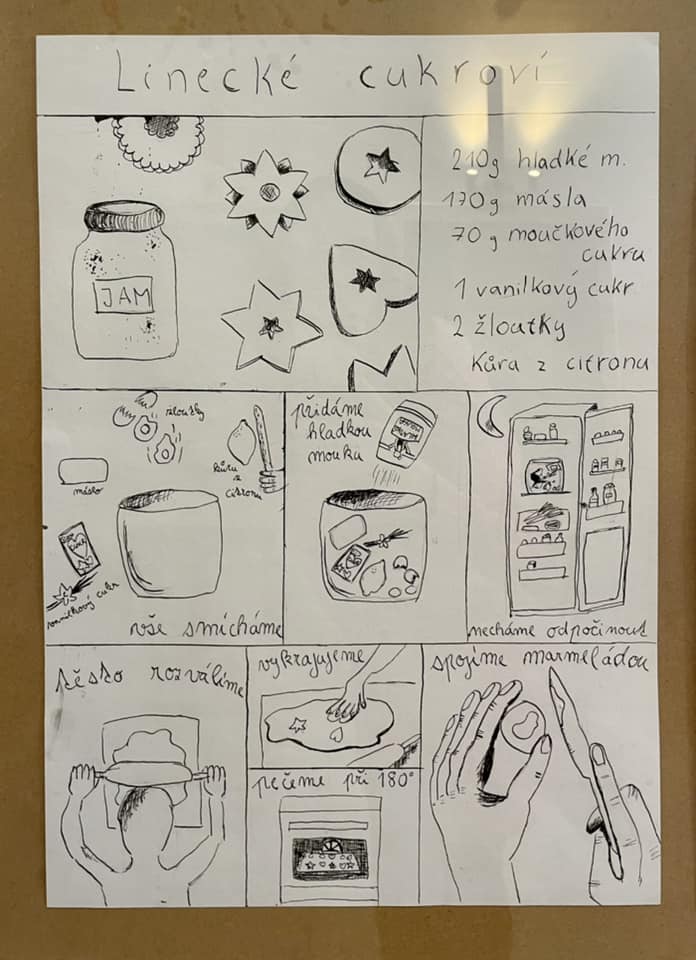 Linecké cukroví
JAM
210g hladké m.
170g másla
70g moučkového
cukru
1 vanilkový cukr
2 žloutky
Kůra z citronu
žloutky
máslo
kůru
z
citronu
vanilkový cukr
vše smícháme
přidáme
hladkou
mouku
necháme odpočinout
těsto rozválíme
vykrajujeme
pečeme při 180°
spojíme marmeládou